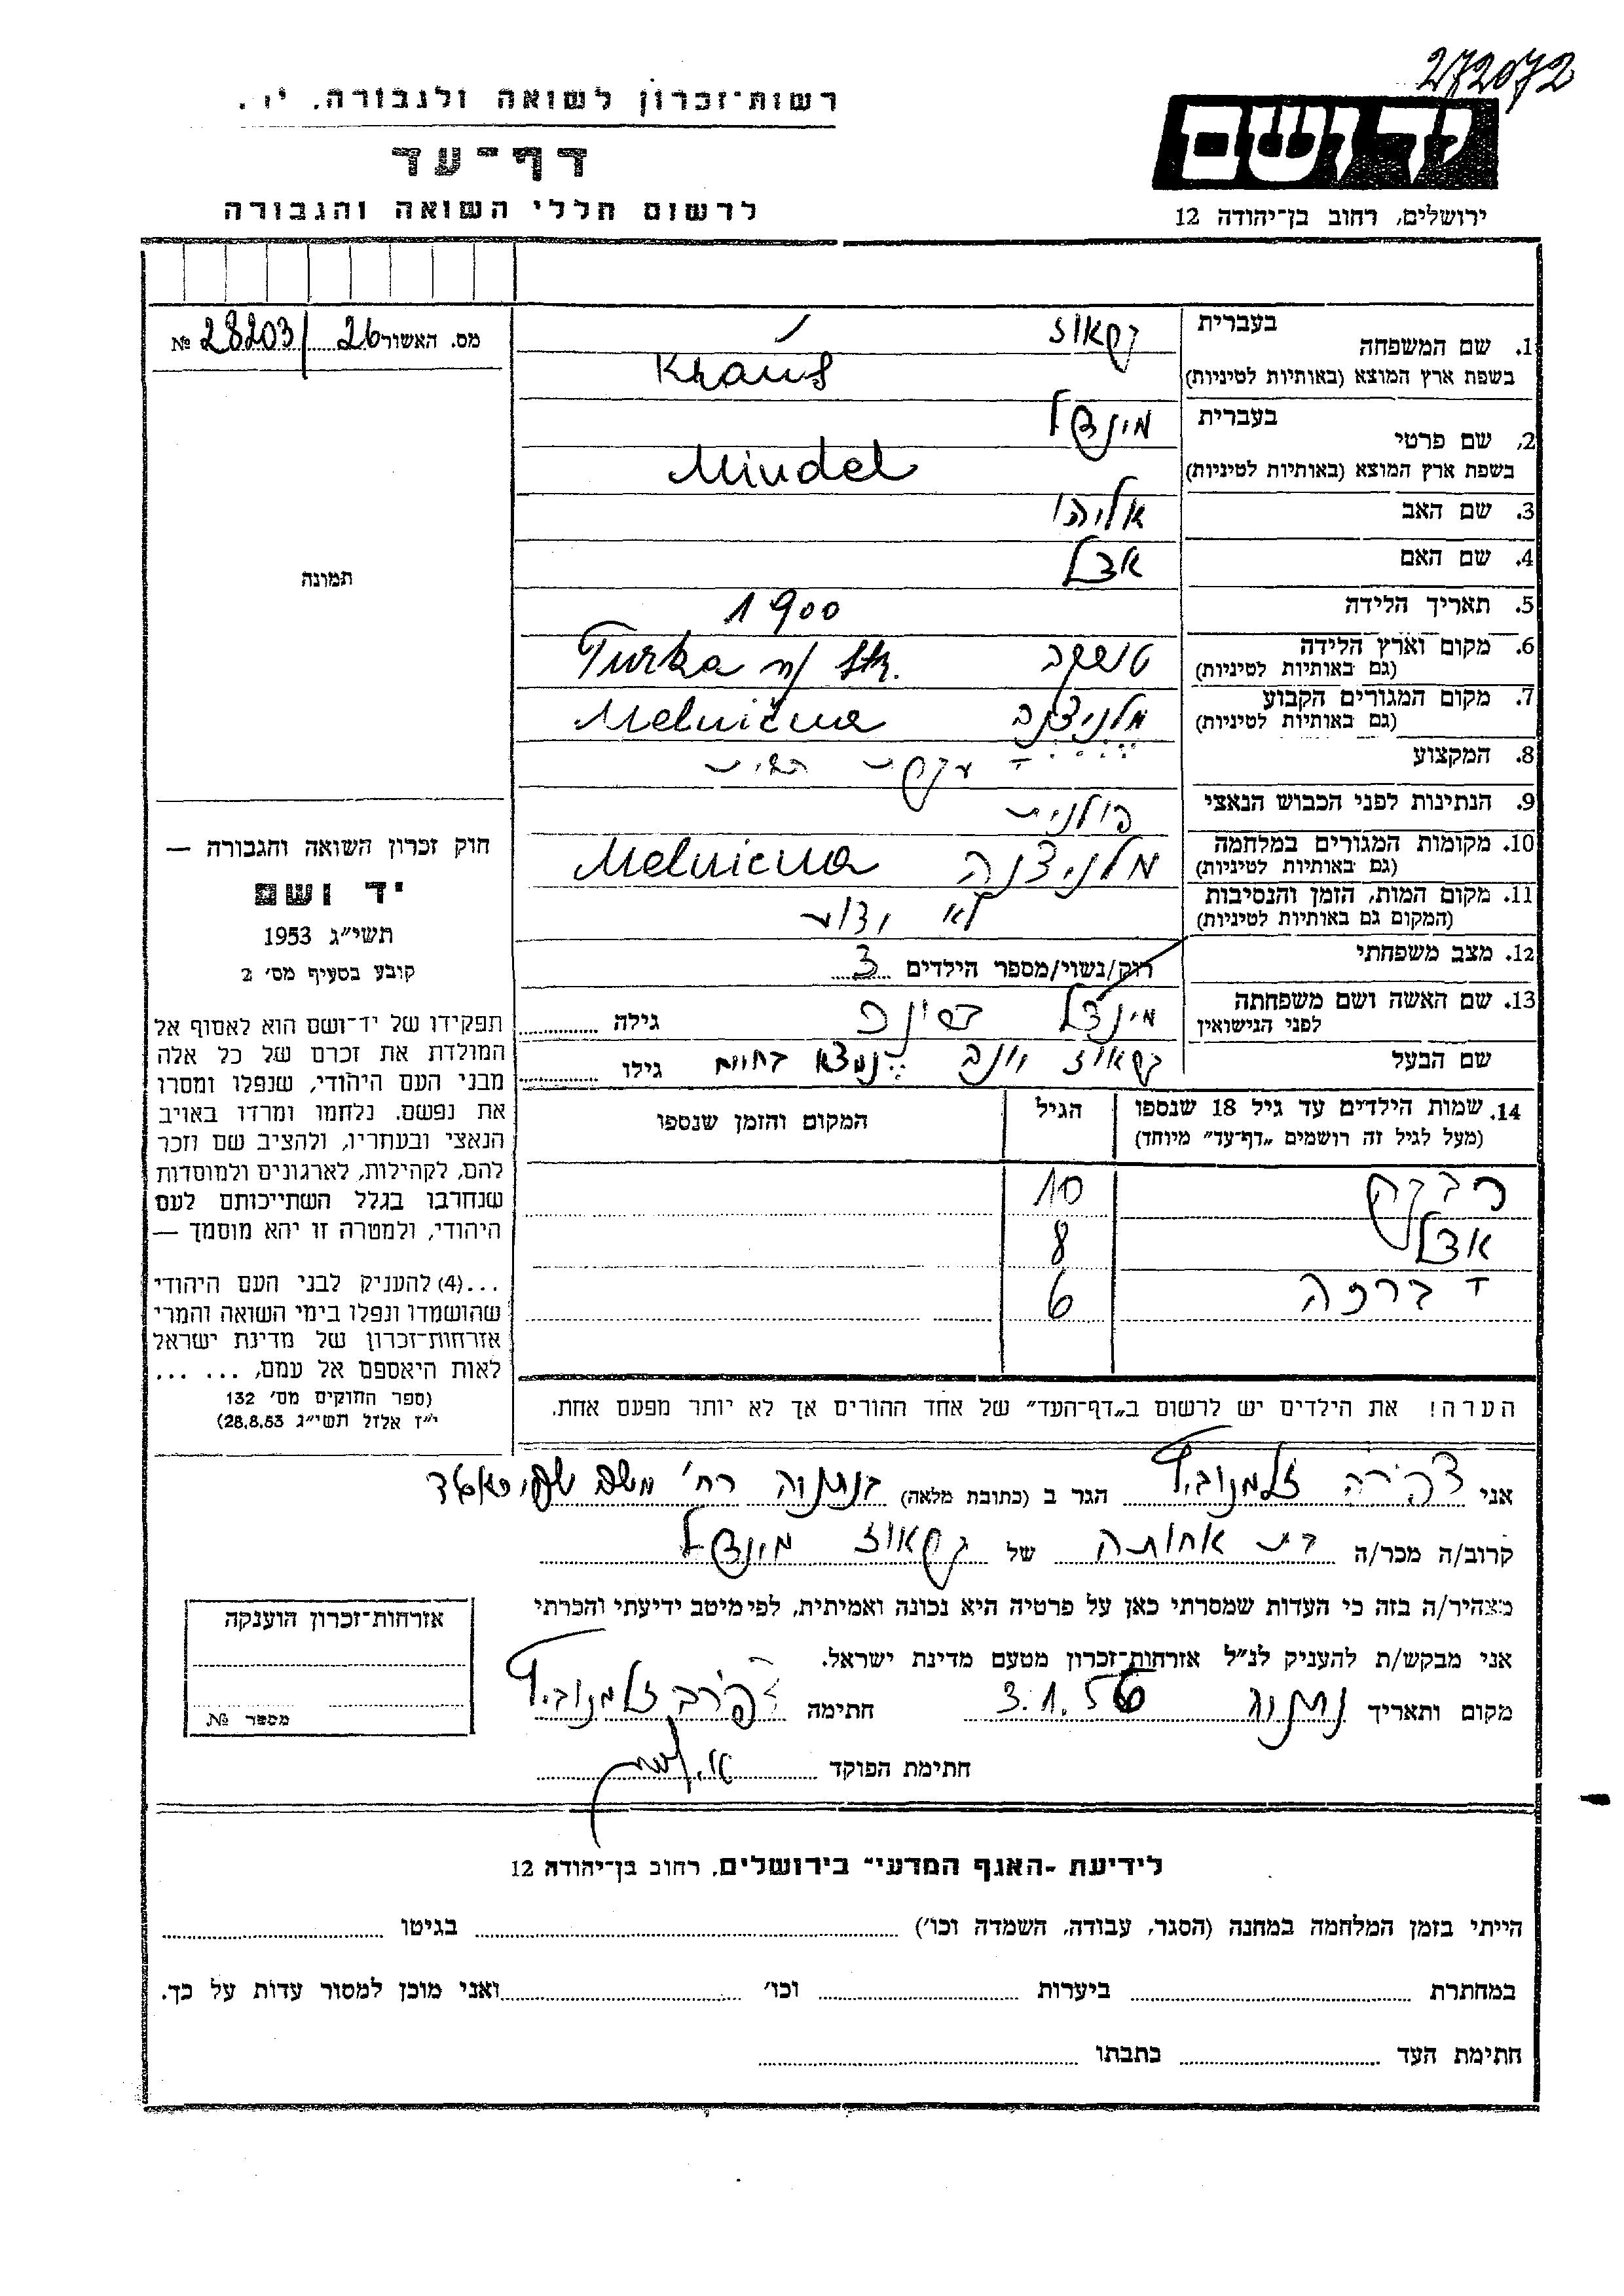 272072
רשות־זכרון לשואה ולגבורה.
דף־עד
לרשום חללי השואה והגבורה
יד ושם
ירושלים, רחוב בן־יהודה 12
מס. האשור 26/28203 №
תמונה
1. שם המשפחה
בעברית קראוז
בשפת ארץ המוצא (באותיות לטיניות) Kraus
2. שם פרטי
בעברית מינדל
בשפת ארץ המוצא (באותיות לטיניות) Mindel
3. שם האב אליהו
4. שם האם אדל
5. תאריך הלידה 1900
6. מקום וארץ הלידה טורקה Turka n/ Str.
(גם באותיות לטיניות)
7. מקום המגורים הקבוע מלניצנה Melnična
(גם באותיות לטיניות)
8. המקצוע עקרת בית
9. הנתינות לפני הכבוש הנאצי פולנית
10. מקומות המגורים במלחמה מלניצנה Melnicna
(גם באותיות לטיניות)
11. מקום המות, הזמן והנסיבות לא ידוע
(המקום גם באותיות לטיניות)
12. מצב משפחתי רוק/נשוי/מספר הילדים 3
13. שם האשה ושם משפחתה מינדל גילה
לפני הנישואין
שם הבעל קראוז יונה נמצא בחיים גילו
14. שמות הילדים עד גיל 18 שנספו הגיל המקום והזמן שנספו
(מעל לגיל זה רושמים „דף־עד” מיוחד)
רבקה 10
אדל 8
דברה 6
הערה! את הילדים יש לרשום ב„דף־העד” של אחד ההורים אך לא יותר מפעם אחת.
חוק זכרון השואה והגבורה —
יד ושם
תשי״ג 1953
קובע בסעיף מס׳ 2
תפקידו של יד־ושם הוא לאסוף אל
המולדת את זכרם של כל אלה
מבני העם היהודי, שנפלו ומסרו
את נפשם. נלחמו ומרדו באויב
הנאצי ובעוזריו, ולהציב שם וזכר
להם, לקהילות, לארגונים ולמוסדות
שנחרבו בגלל השתייכותם לעם
היהודי, ולמטרה זו יהא מוסמך —
...(4) להעניק לבני העם היהודי
שהושמדו ונפלו בימי השואה והמרי
אזרחות־זכרון של מדינת ישראל
לאות היאספם אל עמם, ... ...
(ספר החוקים מס׳ 132
י״ז אלול תשי״ג 28.8.53)
אני זלמנוביץ הגר ב (כתובת מלאה) בנתניה רח׳
קרוב/ה מכר/ה בת אחותה של קראוז מינדל
מצהיר/ה בזה כי העדות שמסרתי כאן על פרטיה היא נכונה ואמיתית, לפי מיטב ידיעתי והכרתי
אני מבקש/ת להעניק לנ״ל אזרחות־זכרון מטעם מדינת ישראל.
מקום ותאריך נתניה 3.1.56 חתימה זלמנוביץ
חתימת הפוקד
אזרחות־זכרון הוענקה
מספר №
לידיעת ״האגף המדעי״ בירושלים, רחוב בן־יהודה 12
הייתי בזמן המלחמה במחנה (הסגר, עבודה, השמדה וכו׳) בגיטו
במחתרת ביערות וכו׳ ואני מוכן למסור עדות על כך.
חתימת העד כתבתו